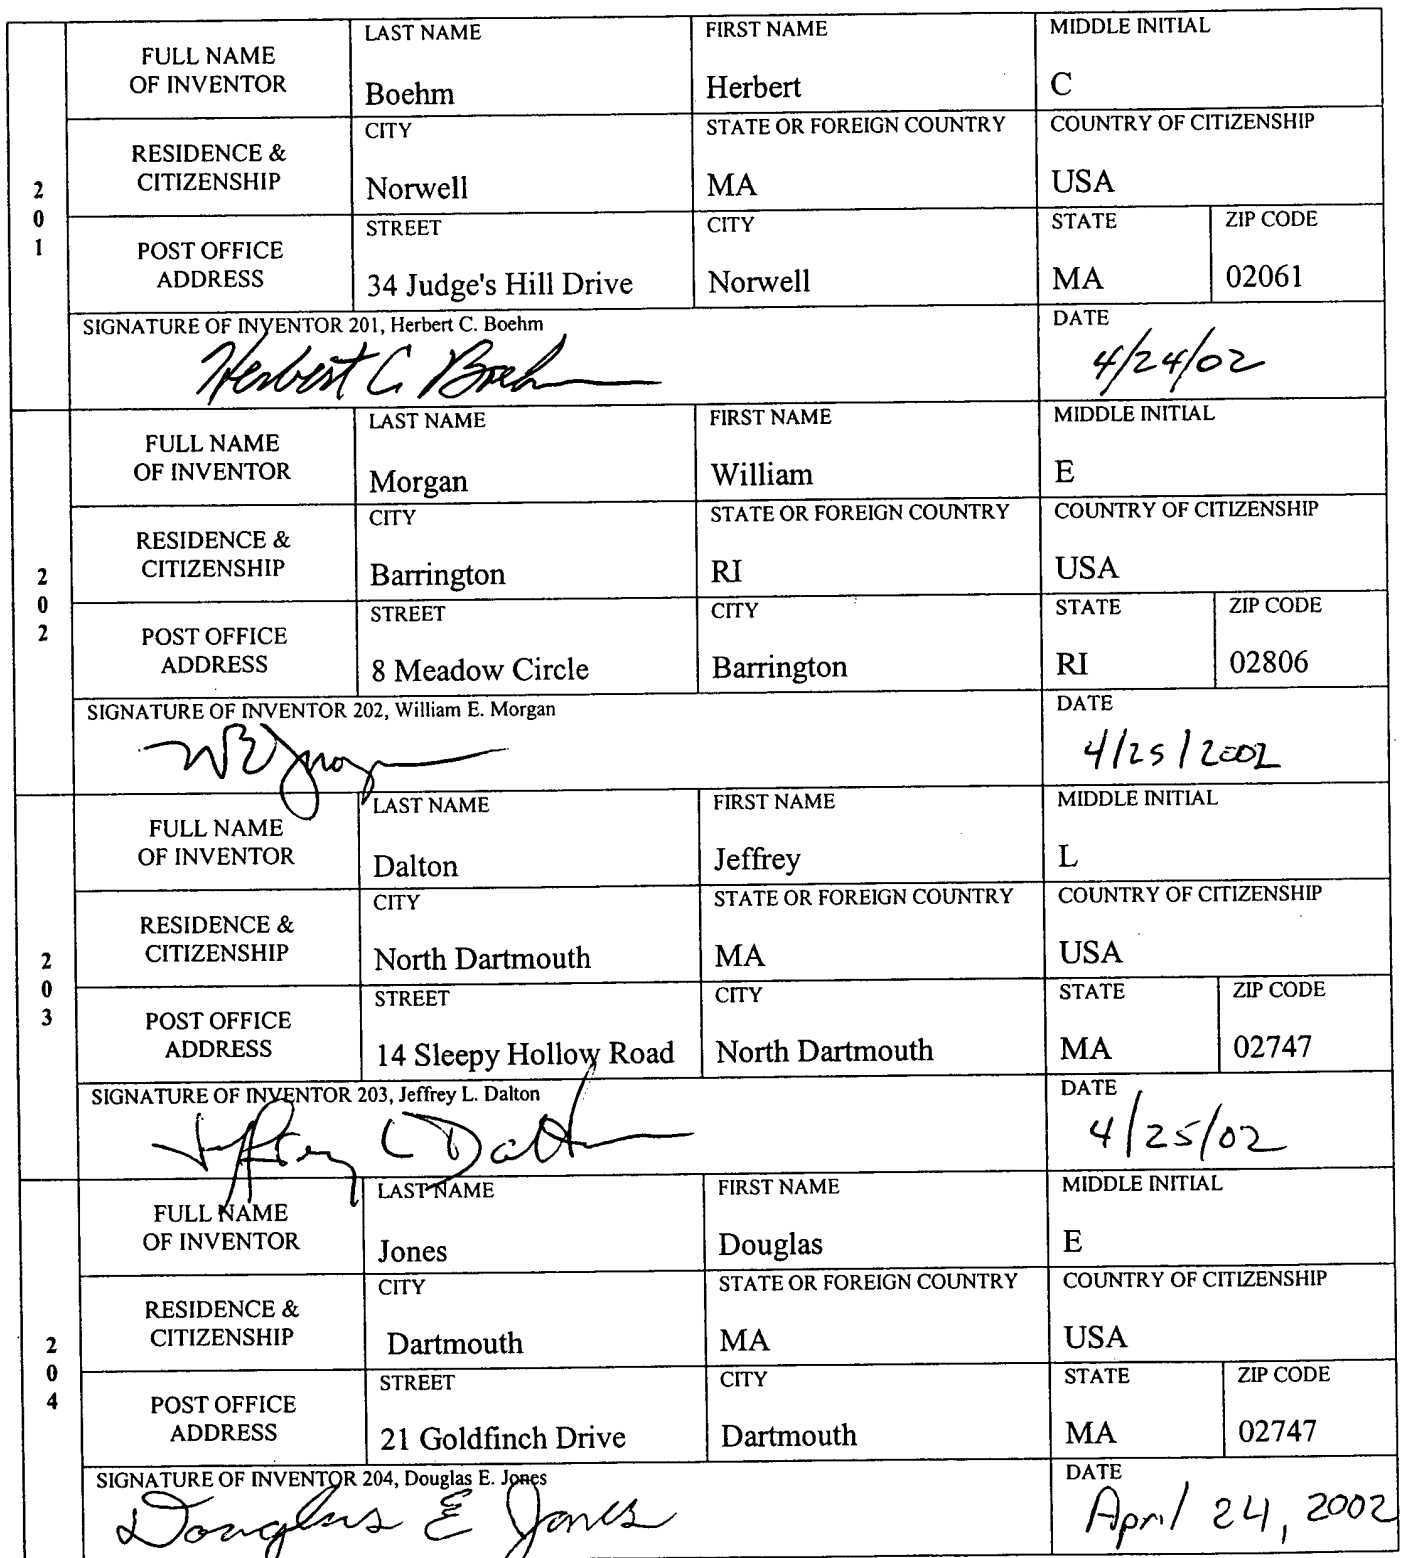 2
0
1
FULL NAME
OF INVENTOR
LAST NAME
Boehm
FIRST NAME
Herbert
MIDDLE INITIAL
C
RESIDENCE &
CITIZENSHIP
CITY
Norwell
STATE OR FOREIGN COUNTRY
MA
COUNTRY OF CITIZENSHIP
USA
POST OFFICE
ADDRESS
STREET
34 Judge's Hill Drive
CITY
Norwell
STATE
MA
ZIP CODE
02061
SIGNATURE OF INVENTOR 201, Herbert C. Boehm
Herbert C Boehm
DATE
4/24/02
2
0
2
FULL NAME
OF INVENTOR
LAST NAME
Morgan
FIRST NAME
William
MIDDLE INITIAL
E
RESIDENCE &
CITIZENSHIP
CITY
Barrington
STATE OR FOREIGN COUNTRY
RI
COUNTRY OF CITIZENSHIP
USA
POST OFFICE
ADDRESS
STREET
8 Meadow Circle
CITY
Barrington
STATE
RI
ZIP CODE
02806
SIGNATURE OF INVENTOR 202, William E. Morgan
DATE
4/25/2002
2
0
3
FULL NAME
OF INVENTOR
LAST NAME
Dalton
FIRST NAME
Jeffrey
MIDDLE INITIAL
L
RESIDENCE &
CITIZENSHIP
CITY
North Dartmouth
STATE OR FOREIGN COUNTRY
MA
COUNTRY OF CITIZENSHIP
USA
POST OFFICE
ADDRESS
STREET
14 Sleepy Hollow Road
CITY
North Dartmouth
STATE
MA
ZIP CODE
02747
SIGNATURE OF INVENTOR 203, Jeffrey L. Dalton
Jeffrey L Dalton
DATE
4/25/02
2
0
4
FULL NAME
OF INVENTOR
LAST NAME
Jones
FIRST NAME
Douglas
MIDDLE INITIAL
E
RESIDENCE &
CITIZENSHIP
CITY
Dartmouth
STATE OR FOREIGN COUNTRY
MA
COUNTRY OF CITIZENSHIP
USA
POST OFFICE
ADDRESS
STREET
21 Goldfinch Drive
CITY
Dartmouth
STATE
MA
ZIP CODE
02747
SIGNATURE OF INVENTOR 204, Douglas E. Jones
Douglas E Jones
DATE
April 24, 2002